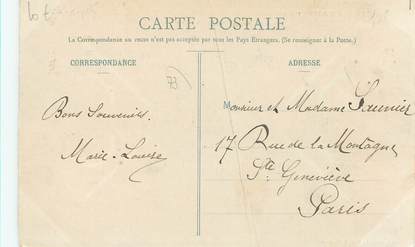 Lot
CARTE POSTALE
La Correspondance au recto n'est pas acceptée par tous les Pays Etrangers. (Se renseigner à la Poste.)
CORRESPONDANCE
ADRESSE
Bons Souvenirs.
Marie-Louise
Monsieur et Madame Saunier
17 Rue de la Montagne
Ste Geneviève
Paris